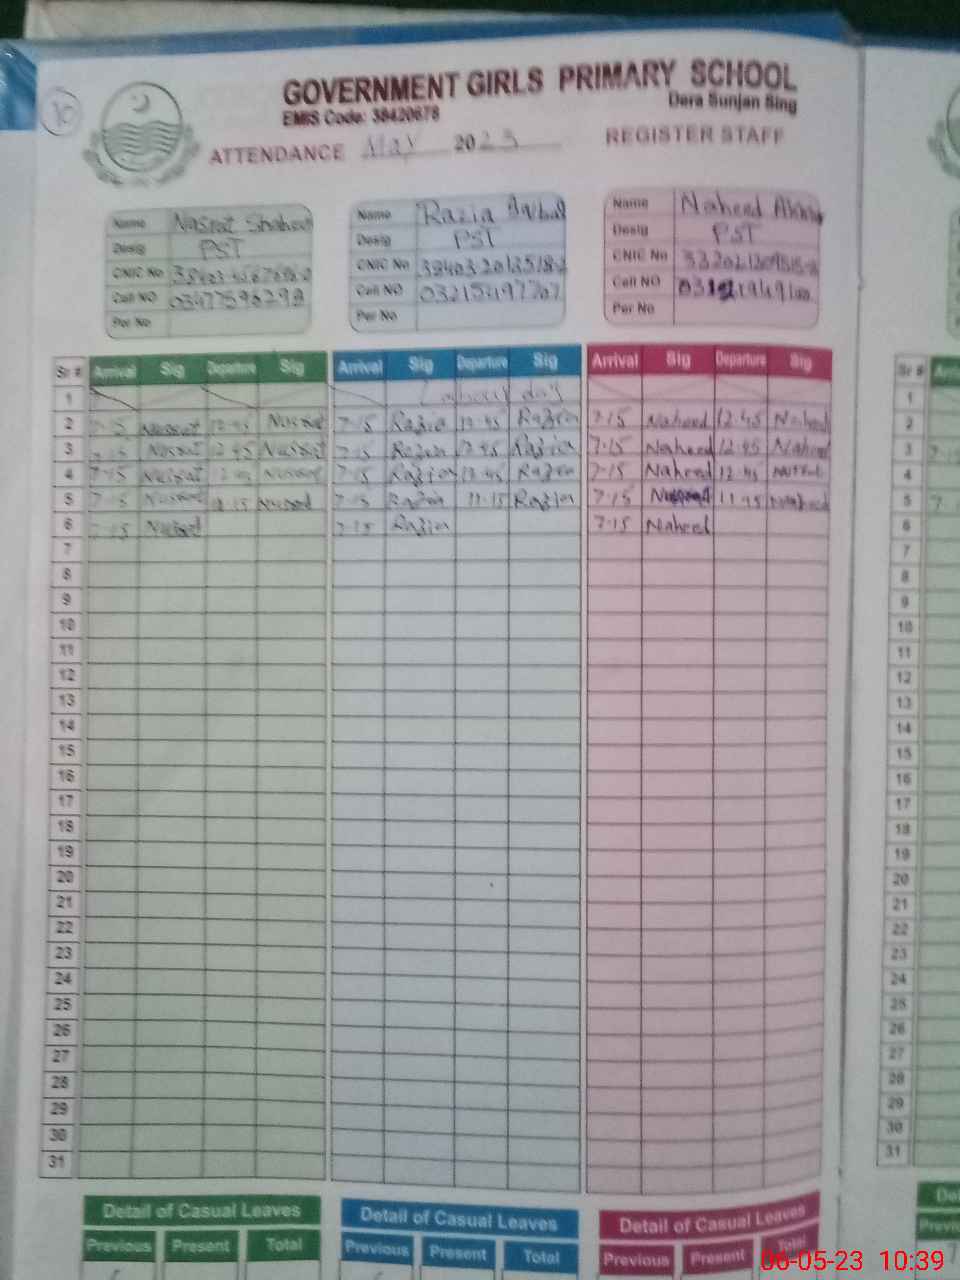 10
GOVERNMENT GIRLS PRIMARY SCHOOL
Dera Sunjan Sing
EMIS Code: 38420678
ATTENDANCE May 2023 REGISTER STAFF
Name Nasrat Shaheen Name Razia Name Naheed
Desig PST Desig PST Desig PST
CNIC No CNIC No CNIC No
Cell NO 03477596298 Cell NO 03215497707 Cell No
Per No Per No Per No
Sr # Arrival Sig Departure Sig Arrival Sig Departure Sig Arrival Sig Departure Sig Sr #
1 Labour day 1
2 7-15 Nussrat 12-45 Nussrat 7-15 Razia 12-45 Razia 7-15 Naheed 12-45 Naheed 2
3 7-15 Nussrat 12-45 Nussrat 7-15 Razia 12-45 Razia 7-15 Naheed 12-45 Naheed 3
4 7-15 Nussrat 12-45 Nussrat 7-15 Razia 12-45 Razia 7-15 Naheed 12-45 4
5 7-15 Nussrat 7-15 Razia 11-15 Razia 7-15 11-45 Naheed 5
6 7-15 Nussrat 7-15 Razia 7-15 Naheed 6
7 7
8 8
9 9
10 10
11 11
12 12
13 13
14 14
15 15
16 16
17 17
18 18
19 19
20 20
21 21
22 22
23 23
24 24
25 25
26 26
27 27
28 28
29 29
30 30
31 31
Detail of Casual Leaves Detail of Casual Leaves Detail of Casual Leaves
Previous Present Total Previous Present Total Previous Present Total
06-05-23 10:39